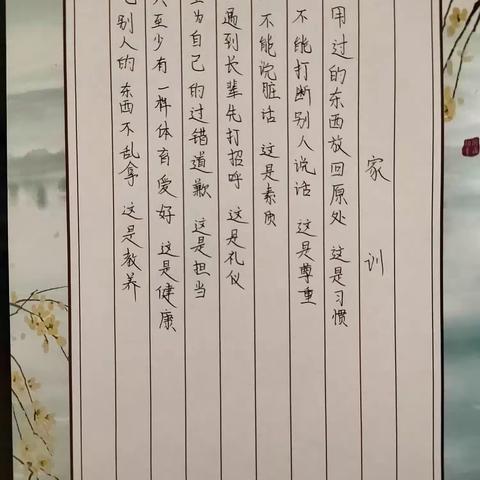 家训
用过的东西放回原处 这是习惯
不能打断别人说话 这是尊重
不能说脏话 这是素质
遇到长辈先打招呼 这是礼仪
为自己的过错道歉 这是担当
至少有一样体育爱好 这是健康
别人的东西不乱拿 这是教养